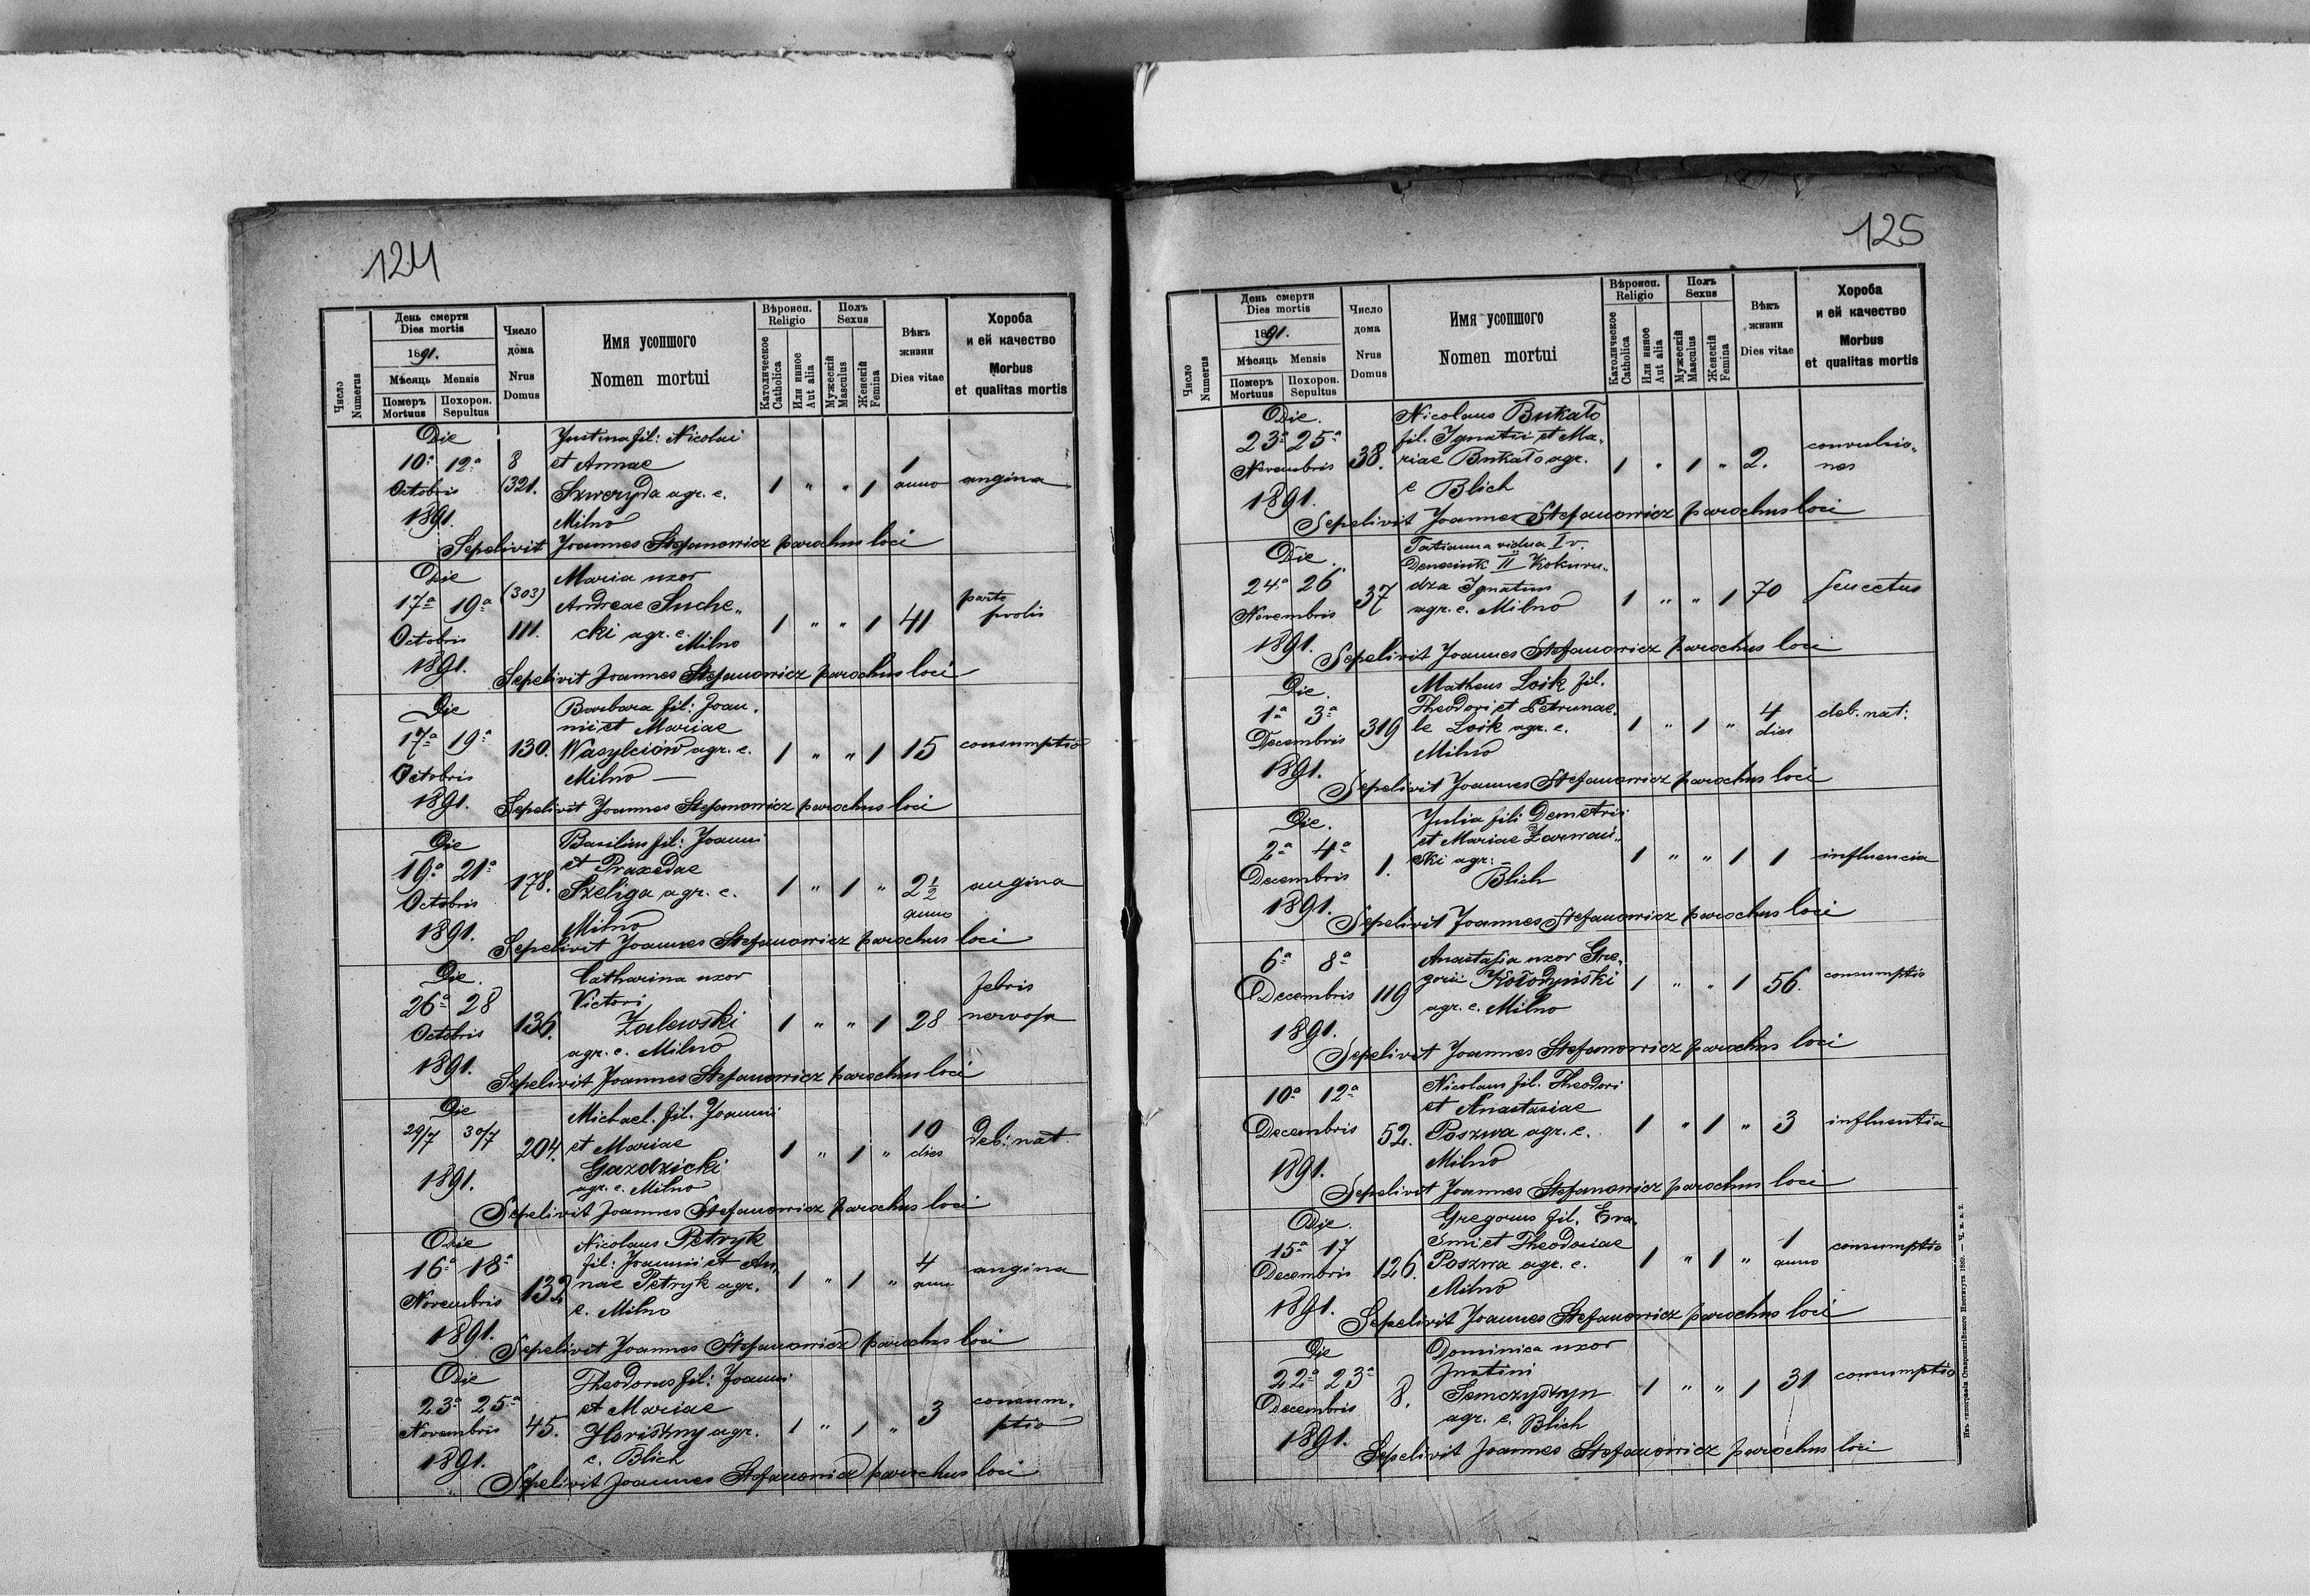 124
День смерти
Dies mortis
1891.
Мѣсяць Mensis
Померъ Похорон.
Mortuus Sepultus
Число
Numerus
Число
дома
Nrus
Domus
Имя усопшого
Nomen mortui
Вѣроисп.
Religio
Католическое
Catholica
Или инное
Aut alia
Полъ
Sexus
Мужескій
Masculus
Женскій
Femina
Вѣкъ
жизни
Dies vitae
Хороба
и ей качество
Morbus
et qualitas mortis
Die Justina fil: Nicolai
10a 12a 8 et Annae 1
Octobris (321. Szweryda agr. e. 1 " " 1 anno angina
1891. Milno
Sepelivit Joannes Stefanowicz parochus loci
Die Maria uxor
17a 19a (303) Andreae Suche„ parte
Octobris 111. cki agr. e. Milno 1 " " 1 41 prolis
1891.
Sepelivit Joannes Stefanowicz parochus loci
Die Barbara fil: Joan„
17a 19a ni et Mariae
130. Wasylciów agr. e. 1 " " 1 15 consumptio
Octobris Milno —
1891. Sepelivit Joannes Stefanowicz parochus loci
Die Basilius fil: Joanni
19a 21a et Praxedae
178. Szeliga agr. e. 1 " 1 " 2 1/2 angina
Octobris anno
1891. Milno
Sepelivit Joannes Stefanowicz parochus loci
Die. Catharina uxor
26a 28 Victori febris
Octobris 136. Zalewski 1 " " 1 28 nervosa
agr. e. Milno
1891. Sepelivit Joannes Stefanowicz parochus loci
Die Michael fil. Joanni
29/7 30/7 204. et Mariae 1 " 1 " 10 dies deb: nat
Gazdzicki
1891. agr. e. Milno
Sepelivit Joannes Stefanowicz parochus loci
Die Nicolaus Petryk
16a 18a fil: Joanni et An„ 4
Novembris 132 nae Petryk agr. 1 " 1 " anno angina
e. Milno
1891.
Sepelivit Joannes Stefanowicz parochus loci
Die Theodorus fil: Joanni
23a 25a et Mariae 3 consum„
Novembris 45. Horiszny agr. 1 " 1 " ptio
1891. e. Blich
Sepelivit Joannes Stefanowicz parochus loci
125
День смерти
Dies mortis
1891.
Мѣсяць Mensis
Померъ Похорон.
Mortuus Sepultus
Число
Numerus
Число
дома
Nrus
Domus
Имя усопшого
Nomen mortui
Вѣроисп.
Religio
Католическое
Catholica
Или инное
Aut alia
Полъ
Sexus
Мужескій
Masculus
Женскій
Femina
Вѣкъ
жизни
Dies vitae
Хороба
и ей качество
Morbus
et qualitas mortis
Die. Nicolaus Bukało
23a 25a fil. Ignatii et Ma„ convulsio„
Novembris 38. riae Bukało agr. 1 " 1 " 2. nes
1891. e Blich
Sepelivit Joannes Stefanowicz parochus loci
Die. Tatianna vidua I v.
24a 26 II Kokuru„
37 dza Ignatius 1 " " 1 70 senectus
Novembris agr. e. Milno
1891. Sepelivit Joannes Stefanowicz parochus loci
Die. Matheus Loik fil.
1a 3a Theodori et Petrunae„ 4
Decembris 319 le Loik agr. e. 1 " 1 " dies deb. nat:
Milno
1891. Sepelivit Joannes Stefanowicz parochus loci
Die. Julia fil: Demetrii
2a 4a et Mariae
Decembris 1. ski agr: 1 " " 1 1 influencia
Blich
1891. Sepelivit Joannes Stefanowicz parochus loci
6a 8a Anastasia uxor Gre„
Decembris 119 gorii Kołodyński 1 " " 1 56. consumptio
agr. e. Milno
1891.
Sepelivit Joannes Stefanowicz parochus loci
10a 12a Nicolaus fil. Theodori
et Anastasiae
Decembris 52. Poszwa agr. e. 1 " 1 " 3 influentia
Milno
1891. Sepelivit Joannes Stefanowicz parochus loci
Die. Gregorius fil. Era„
15a 17 smi et Theodoriae 1
Decembris 126. Poszwa agr. e. 1 " 1 " anno consumptio
Milno
1891. Sepelivit Joannes Stefanowicz parochus loci
Die Dominica uxor
22a 23a Justini
Decembris 8. Semczyszyn 1 " " 1 31 consumptio
agr. e. Blich
1891. Sepelivit Joannes Stefanowicz parochus loci
Изъ типографіи Ставропигійского Института 1889.